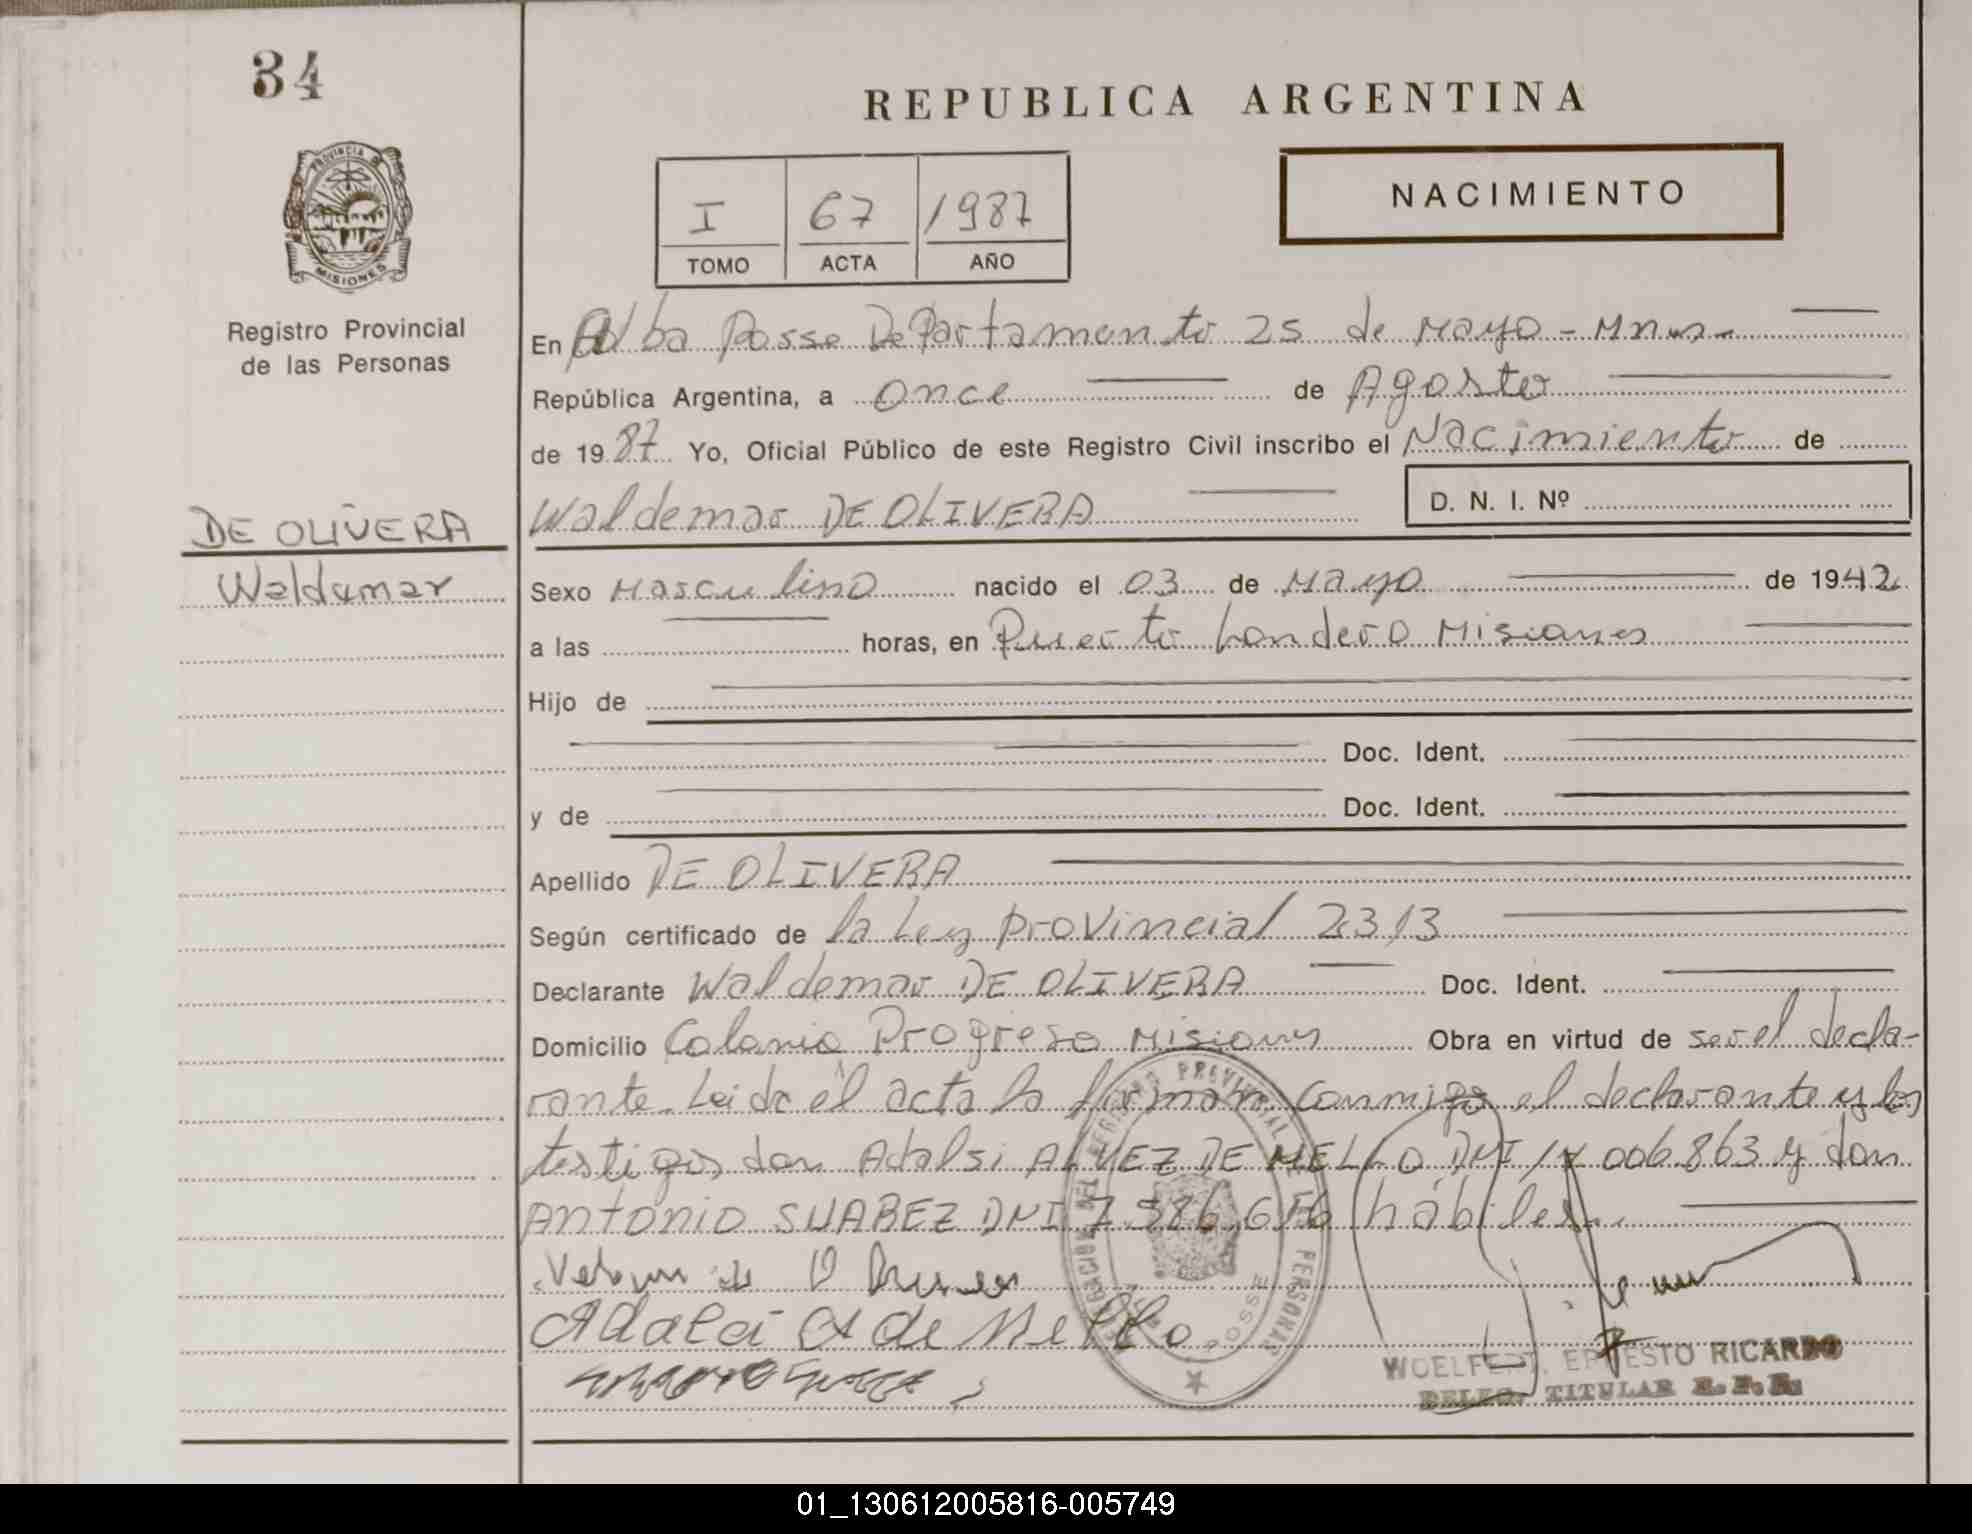 34
REPUBLICA ARGENTINA
PROVINCIA DE
MISIONES
I 67 1987
TOMO ACTA AÑO
NACIMIENTO
Registro Provincial
de las Personas
En Alba Posse Departamento 25 de Mayo - Mnes -
República Argentina, a once de Agosto
de 1987 Yo, Oficial Público de este Registro Civil inscribo el Nacimiento de
Waldemar DE OLIVERA D. N. I. Nº
DE OLIVERA
Waldemar
Sexo Masculino nacido el 03 de Mayo de 1942
a las horas, en Puerto Londero Misiones
Hijo de
Doc. Ident.
y de Doc. Ident.
Apellido DE OLIVERA
Según certificado de la Ley Provincial 2313
Declarante Waldemar DE OLIVERA Doc. Ident.
Domicilio Colonia Progreso Misiones Obra en virtud de ser el decla-
rante. Leida el acta la firman conmigo el declarante y los
testigos don Adalsi ALVEZ DE MELLO DNI 006.863 y don
Antonio SUAREZ DNI 7.586.656 hábiles.
de Mello
WOELFERT, ERNESTO RICARDO
DELEG. TITULAR R. P. P.
POSSE
01_130612005816-005749